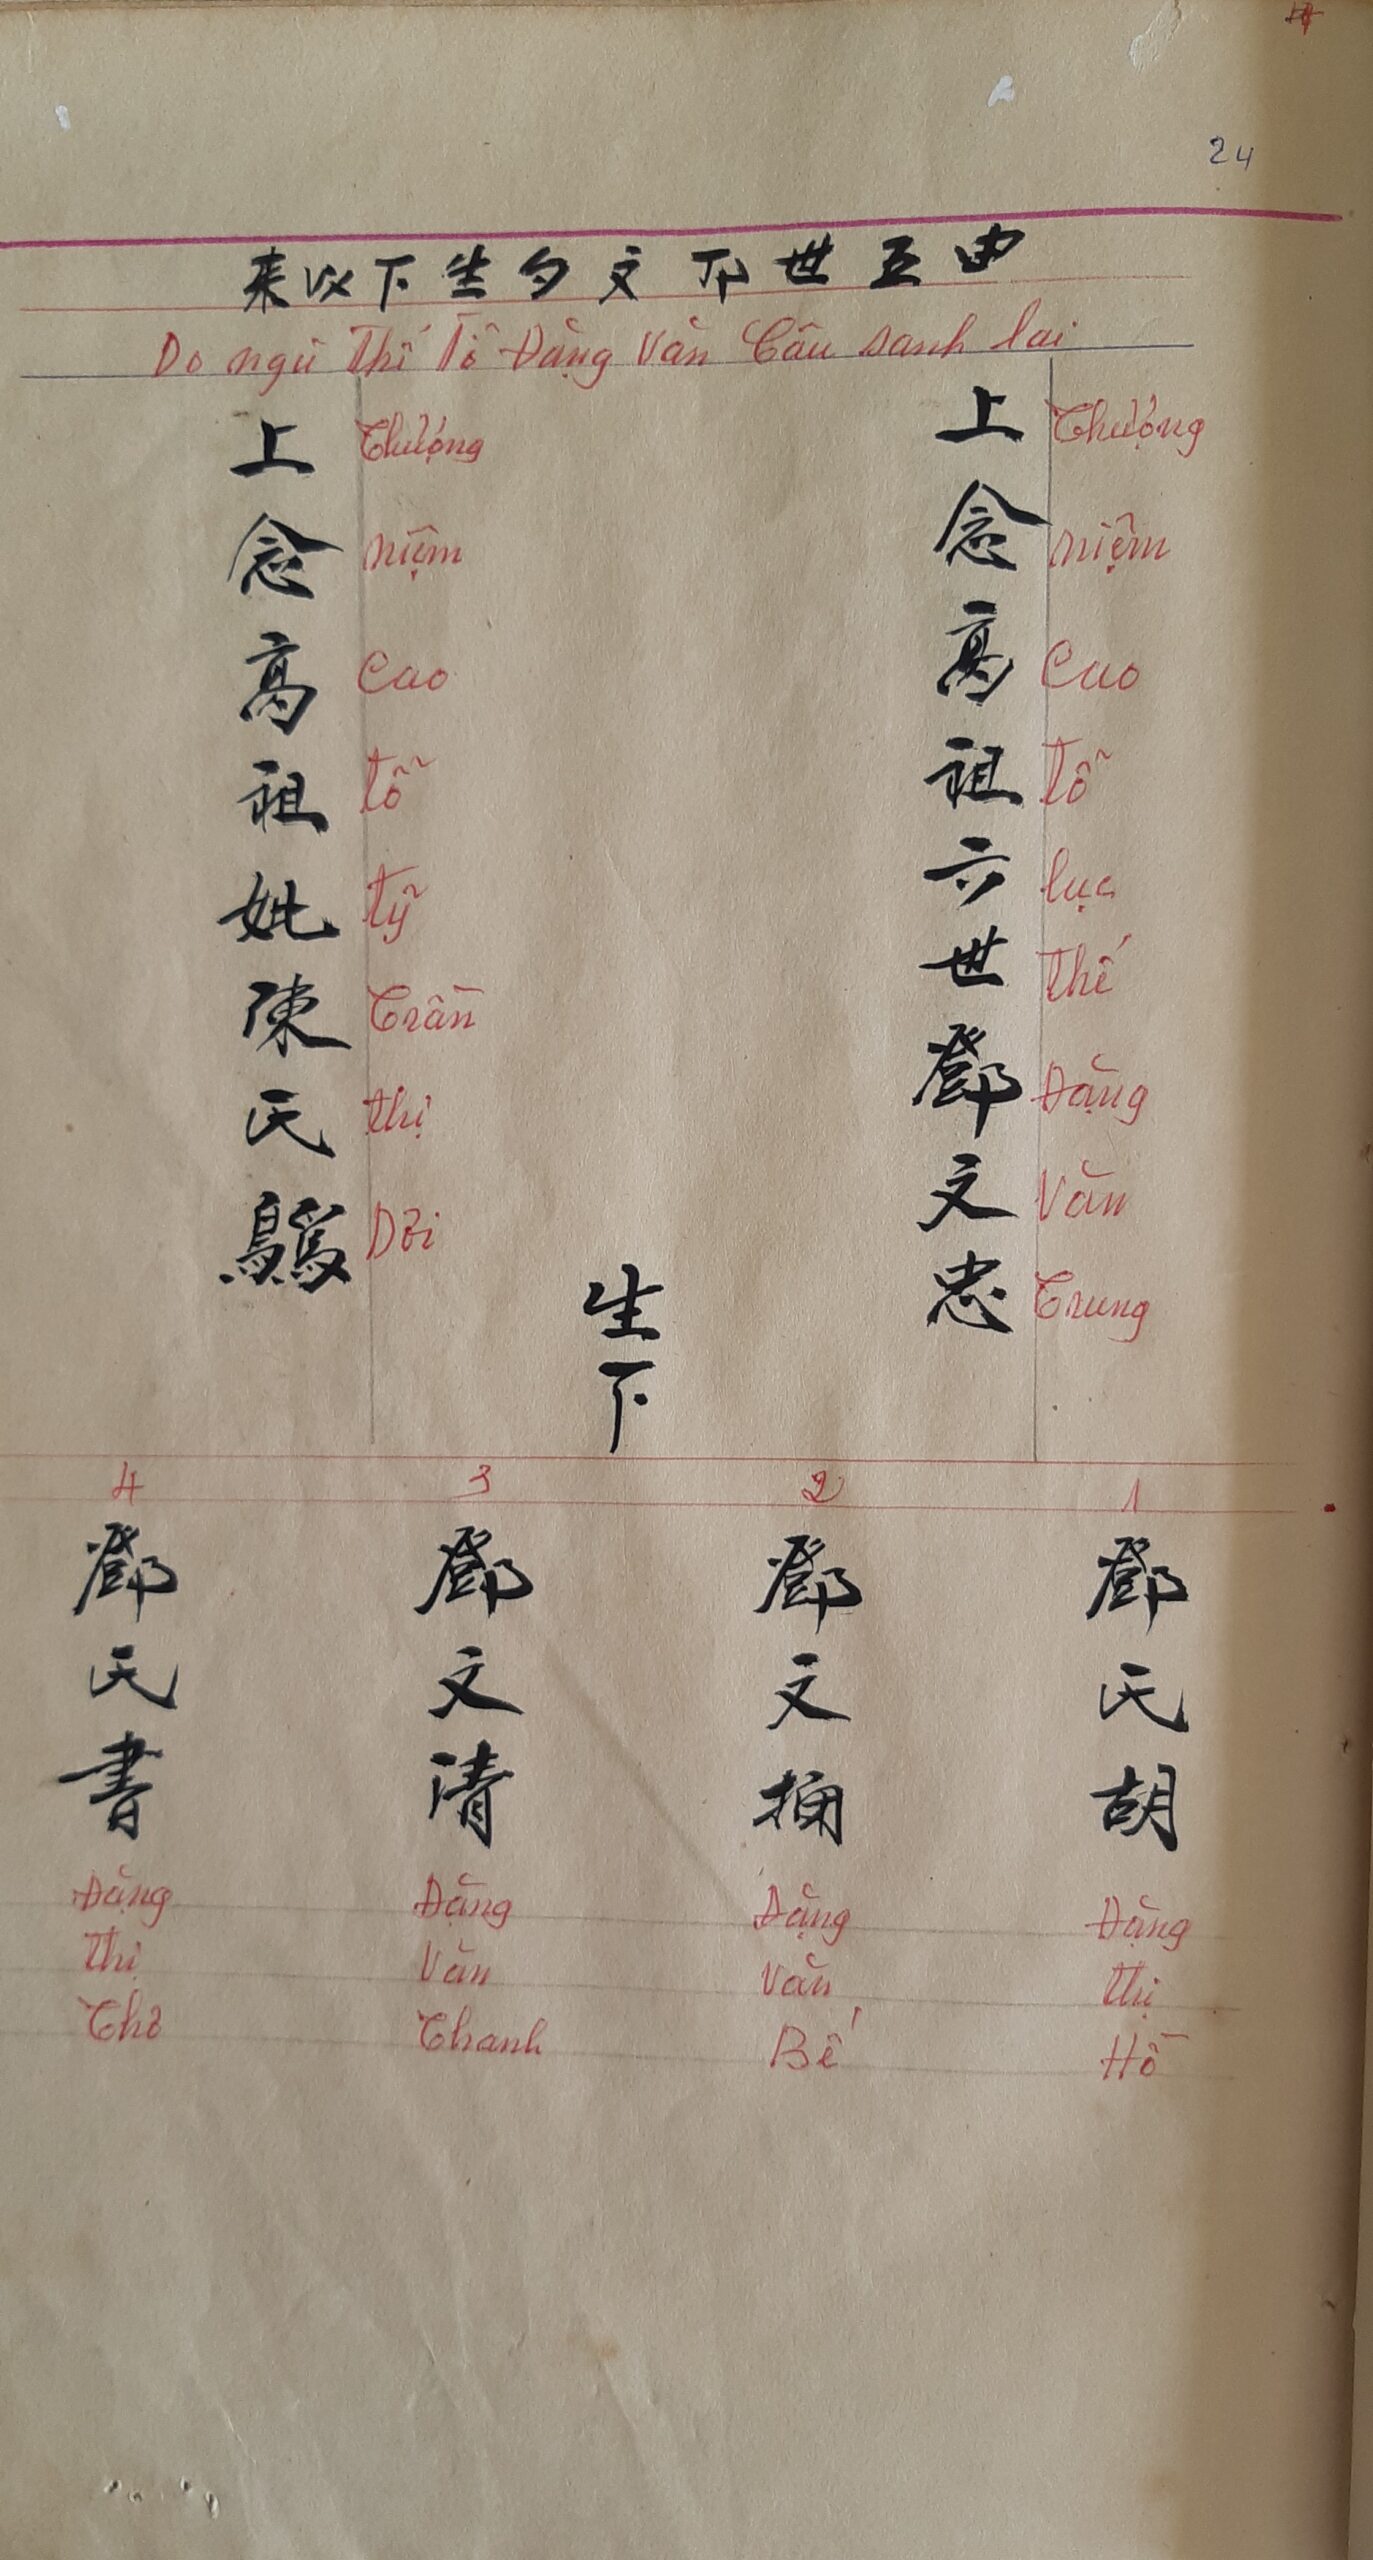 24
由五世邒文勺生下以来
Do ngũ Thế Tổ Đặng Văn Câu sanh lai
上念高祖六世鄧文忠
Thượng
niệm
Cao
tỗ
lục
Thế
Đặng
Văn
Trung
上念高祖妣陳氏
Thượng
niệm
Cao
tỗ
tỹ
Trần
thị
Dơi
生下
1
鄧氏胡
Đặng
thị
Hồ
2
鄧文抪
Đặng
Văn
Bế
3
鄧文清
Đặng
Văn
Thanh
4
鄧氏書
Đặng
thị
Thơ